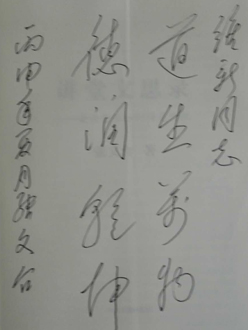 维新同志
道生萬物
德润乾坤
丙申年夏月张文台